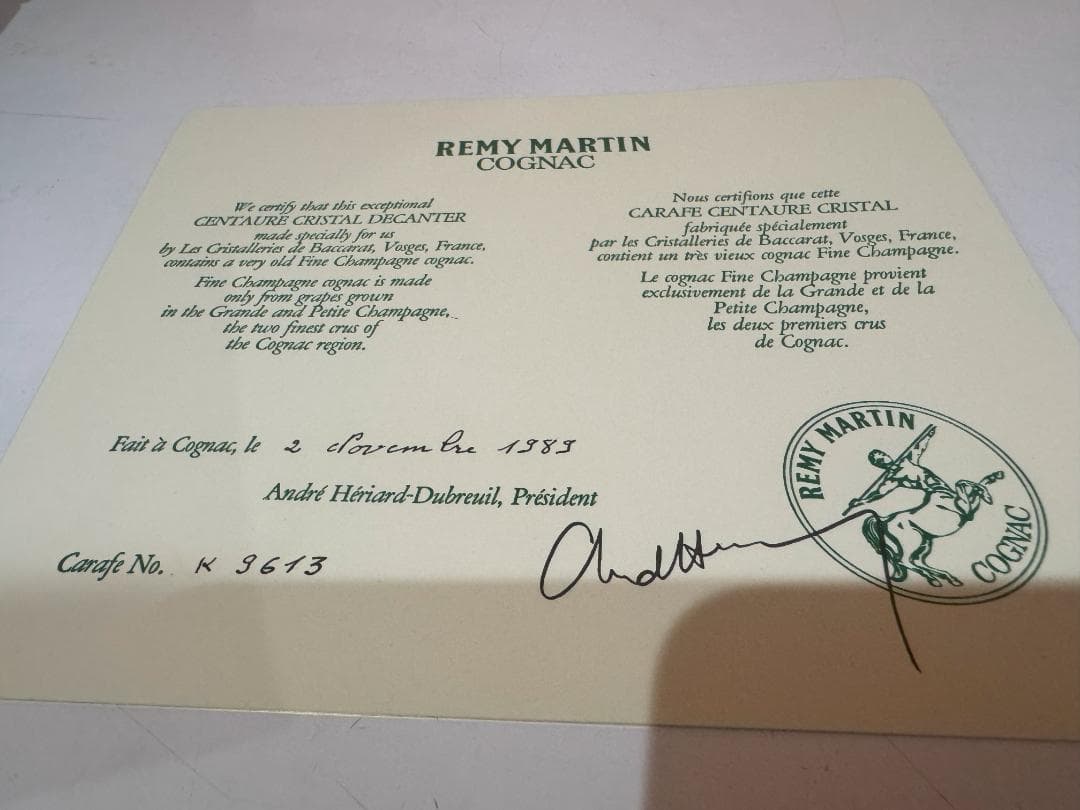 REMY MARTIN
COGNAC
We certify that this exceptional
CENTAURE CRISTAL DECANTER
made specially for us
by Les Cristalleries de Baccarat, Vosges, France,
contains a very old Fine Champagne cognac.
Fine Champagne cognac is made
only from grapes grown
in the Grande and Petite Champagne,
the two finest crus of
the Cognac region.
Nous certifions que cette
CARAFE CENTAURE CRISTAL
fabriquée spécialement
par les Cristalleries de Baccarat, Vosges, France,
contient un très vieux cognac Fine Champagne.
Le cognac Fine Champagne provient
exclusivement de la Grande et de la
Petite Champagne,
les deux premiers crus
de Cognac.
Fait à Cognac, le 2 Novembre 1989
André Hériard-Dubreuil, Président
Carafe No. K 9613
REMY MARTIN
COGNAC